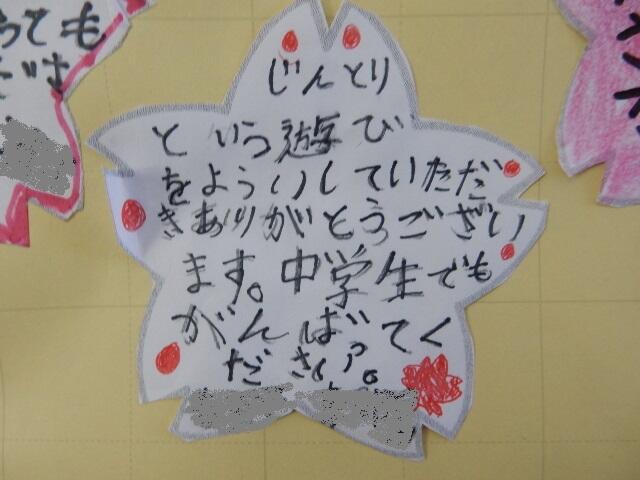 じんとり
という遊び
をよういしていただ
きありがとうござい
ます。中学生でも
がんばてく
ださい。